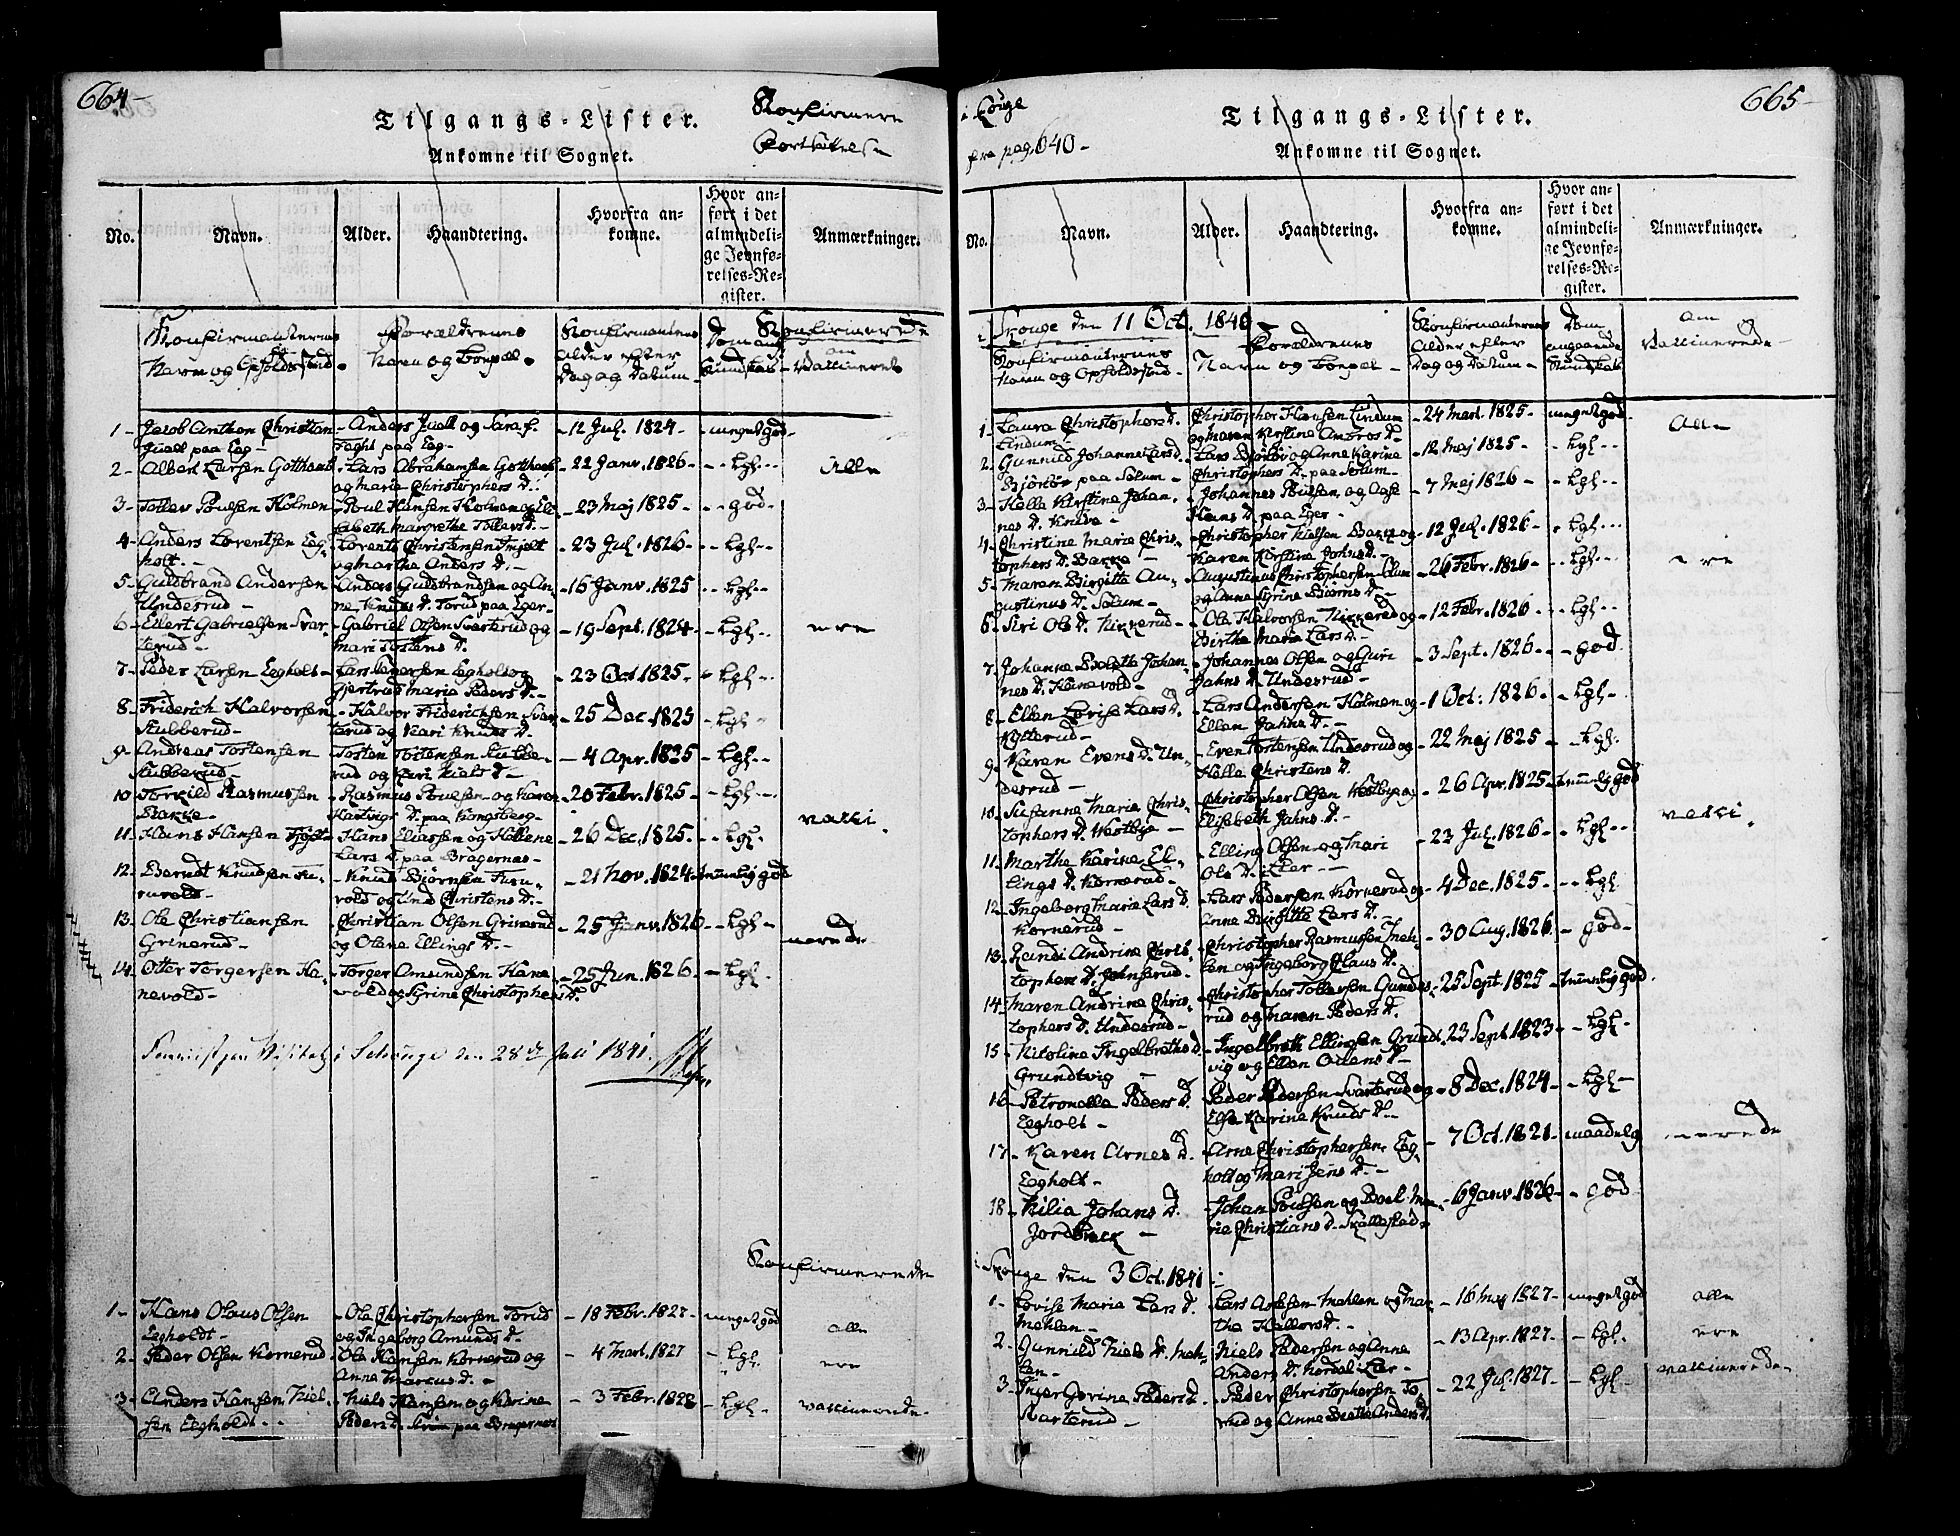 664-
Tilgangs-Lister.
Ankomne til Sognet.
Konfirmere
Fortsættelse
No.
Navn.
Alder.
Haandtering.
Hvorfra an-
komne.
Hvor an-
ført i det
almindeli-
ge Jevnfø-
relses-Re-
gister.
Anmærkninger.
Konfirmanternes
Navn og Opholdssted
Forældrenes
Navn og Bopæl
Konfirmantens
Alder efter
Dag og Datum
Dom ang.
Kundskab
Konfirmerede
om
Vaccineret
1- Jacob Anthon Christian
Juell paa Eeg-
-Anders Juell og Sara f.
paa Eeg-
-12 Jul. 1824-
meget god-
2- Albert Larsen Gotthaab
-Lars Abrahamsen Gotthaab
og Maria Christophers D.
-22 Janv. 1826-
- Lgl--
Alle
3- Toller Poulsen Holmen
-Poul Hansen Holmen og Eli-
sabeth Margrethe Tollers D.-
-23 Maj 1825-
- god-
4- Anders Lorentsen Eg-
holt.-
Lorents Christensen
og Martha Anders D.-
-23 Jul. 1826-
- Lgl--
5- Guldbrand Andersen
Undesrud-
-Anders Guldbrandsen og An-
ne Knuds D. Torud paa Eger-
-16 Janv. 1825
- Lgl--
6- Ellert Gabrielsen Svar-
terud-
-Gabriel Olsen Svarterud og
Mari Tostens D.
-19 Sept. 1824-
- Lgl--
ere
7- Peder Larsen Eegholt-
Lars Pedersen Eegholt og
Gjertrud Maria Peders D.-
-23 Oct. 1825-
- Lgl-
8- Friderich Halvorsen
Stubberud-
-Halvor Friderichsen Svar-
terud og Kari Knuds D.
-25 Dec. 1825
- Lgl-
9- Andreas Tostensen
Stubberud-
Tosten Tostensen Stubbe-
rud og Kari Niels D-
-4 Apr. 1825
- Lgl--
10 Torkild Rasmussen
Bakke-
-Rasmus Poulsen og Karen
Hartvigs D. paa Kongsberg-
-20 Febr. 1825-
- Lgl--
vacci
11- Hans Hansen
-Hans Eliassen og Hellene
Lars D. paa Bragernæs-
-26 Dec. 1825.
- Lgl-
12- Berndt Knudsen Fu-
ruvold-
-Knud Bjørnsen Furu-
vold og Christens D.-
-21 Nov. 1824-
temmelig god
13- Ole Christiansen
Grinerud-
-Christian Olsen Grinerud
og Olene Ellings D.-
-25 Janv. 1826
- Lgl-
nerede
14- Otter Torgersen Ha-
nevold-
-Torger Amundsen Hane
vold og Syrine Christophers D.
-25 Jun. 1826.
- Lgl-
den 28de Juli 1841.
Konfirmerede
1- Hans Olaus Olsen
Eegholdt-
-Ole Christophersen Torud
og Ingeborg Amunds D.
-18 Febr. 1827-
meget god
alle
2- Peder Olsen Kornerud
-Ole Hansen Kornerud og
Anna Marcus D.-
-4 Mart. 1827
-Lgl-
ere
3- Anders Hansen Niel-
sen Eegholdt-
-Niels Hansen og Karine
Peders D. paa Bragernæs
-3 Febr. 1828
-Lgl-
vaccinerede-
i Skouge
fra pag. 640-
665-
Tilgangs-Lister.
Ankomne til Sognet.
No.
Navn.
Alder.
Haandtering.
Hvorfra an-
komne.
Hvor an-
ført i det
almindeli-
ge Jevnfø-
relses-Re-
gister.
Anmærkninger.
i Skouge den 11 Oct. 1840
Konfirmanternes
Navn og Opholdssted-
Forældrenes
Navn og Bopæl-
Konfirmanternes
Alder efter
Dag og Datum-
Dom
angaaende
Kundskab
om
Vaccinerede-
1- Laura Christophers D.
Lindum-
Christopher Hansen Lindum
og Maren Kirstine Ambros D.-
-24 Mart. 1825-
meget god-
Alle
2- Gunnild Johanne Lars D.
paa Solum-
Lars og Anne Karine
Christophers D. paa Solum-
-12 Maj 1825-
- Lgl--
3- Helle Kirstine Johan-
nes D. Knive-
-Johannes Poulsen og Aase
Hans D. paa Eger-
-7 Maj 1826-
- Lgl--
4- Christine Marie Chris-
tophers D. Bakke-
-Christopher Nielsen Bakke og
Karen Kirstine Johns D.-
-12 Jul. 1826-
- Lgl--
5- Maren Birgitte Au-
gustinus D. Solum-
Augustinus Christophersen Solum
og Anne Syrine Biørns D.-
-26 Febr. 1826-
- Lgl--
ere
6- Siri Ols D. Kikkerud-
Ole Halvorsen Kikkerud og
Birthe Maria Lars D.-
-12 Febr. 1826-
- Lgl--
7. Johanne Bolette Johan-
nes D. Hanevold-
-Johannes Olsen og Guri
Jahns D. Undesrud-
-3 Sept. 1826-
-god.
8- Ellen Lovise Lars D.
Kytterud-
-Lars Andersen Holmen og
Ellen Jahns D.-
-1 Oct. 1826-
- Lgl-
9- Karen Evens D. Un-
desrud-
-Even Tostensen Undesrud og
Helle Christens D.
-22 Maj 1825-
- Lgl-
10- Susanne Maria Chris-
tophers D. Westbye-
-Christopher Olsen Westbye og
Elisabeth Jahns D.-
-26 Apr. 1825-
temmelig god
vacci
11- Marthe Karine El-
lings D. Kornerud-
-Elling Olsen og Mari
Ols D. Lier--
-23 Jul. 1826-
- Lgl--
12- Ingeborg Maria Lars D.
Kornerud-
-Lars Pedersen Kornerud og
Anne Birgitte Lars D.-
-4 Dec. 1825-
- Lgl
13- Randi Andrine Chris-
tophers D. Johnsrud-
-Christopher Rasmussen Meh-
len og Ingeborg Claus D.
-30 Aug. 1826.
-god-
14- Maren Andrine Chris-
tophers D. Undesrud-
-Christopher Tollersen Gundes-
rud og Maren Peders D.
-25 Sept. 1825
temmelig god
15 Nicoline Ingelbreths D.
Grundtvig-
-Ingelbreth Ellingsen Grundt-
vig og Ellen Oelens D-
-23 Sept. 1823-
-Lgl-
16- Petronelle Peders D.
Eegholt-
Peder Pedersen Svarterud og
Else Karine Knuds D.-
-8 Dec. 1824-
-Lgl-
17- Karen Arnes D.
Eegholt-
-Arne Christophersen Eeg-
holt og Mari Jens D.-
-7 Oct. 1821-
maadelig
nerede
18- Nilia Johans D.
Jordbræk-
-Johan Poulsen og Boel Ma-
rie Christians D.
-6 Janv. 1826-
-god
i Skouge den 3 Oct. 1841-
1- Lovise Maria Lars D.
Mehlen-
-Lars Mehlen og Mar-
the Hallvors D.-
-16 Maj 1827-
meget god
alle
2- Gunnild Niels D. Meh-
len-
-Niels Pedersen og Anne
Anders D. Nordal i Lier-
-13 Apr. 1827-
- Lgl.
ere
3- Inger Gorine Peders D.
Svarterud-
-Peder Christophersen To-
rud og Anne Beathe Anders D.
-22 Jul. 1827-
- Lgl-
vaccinerede-